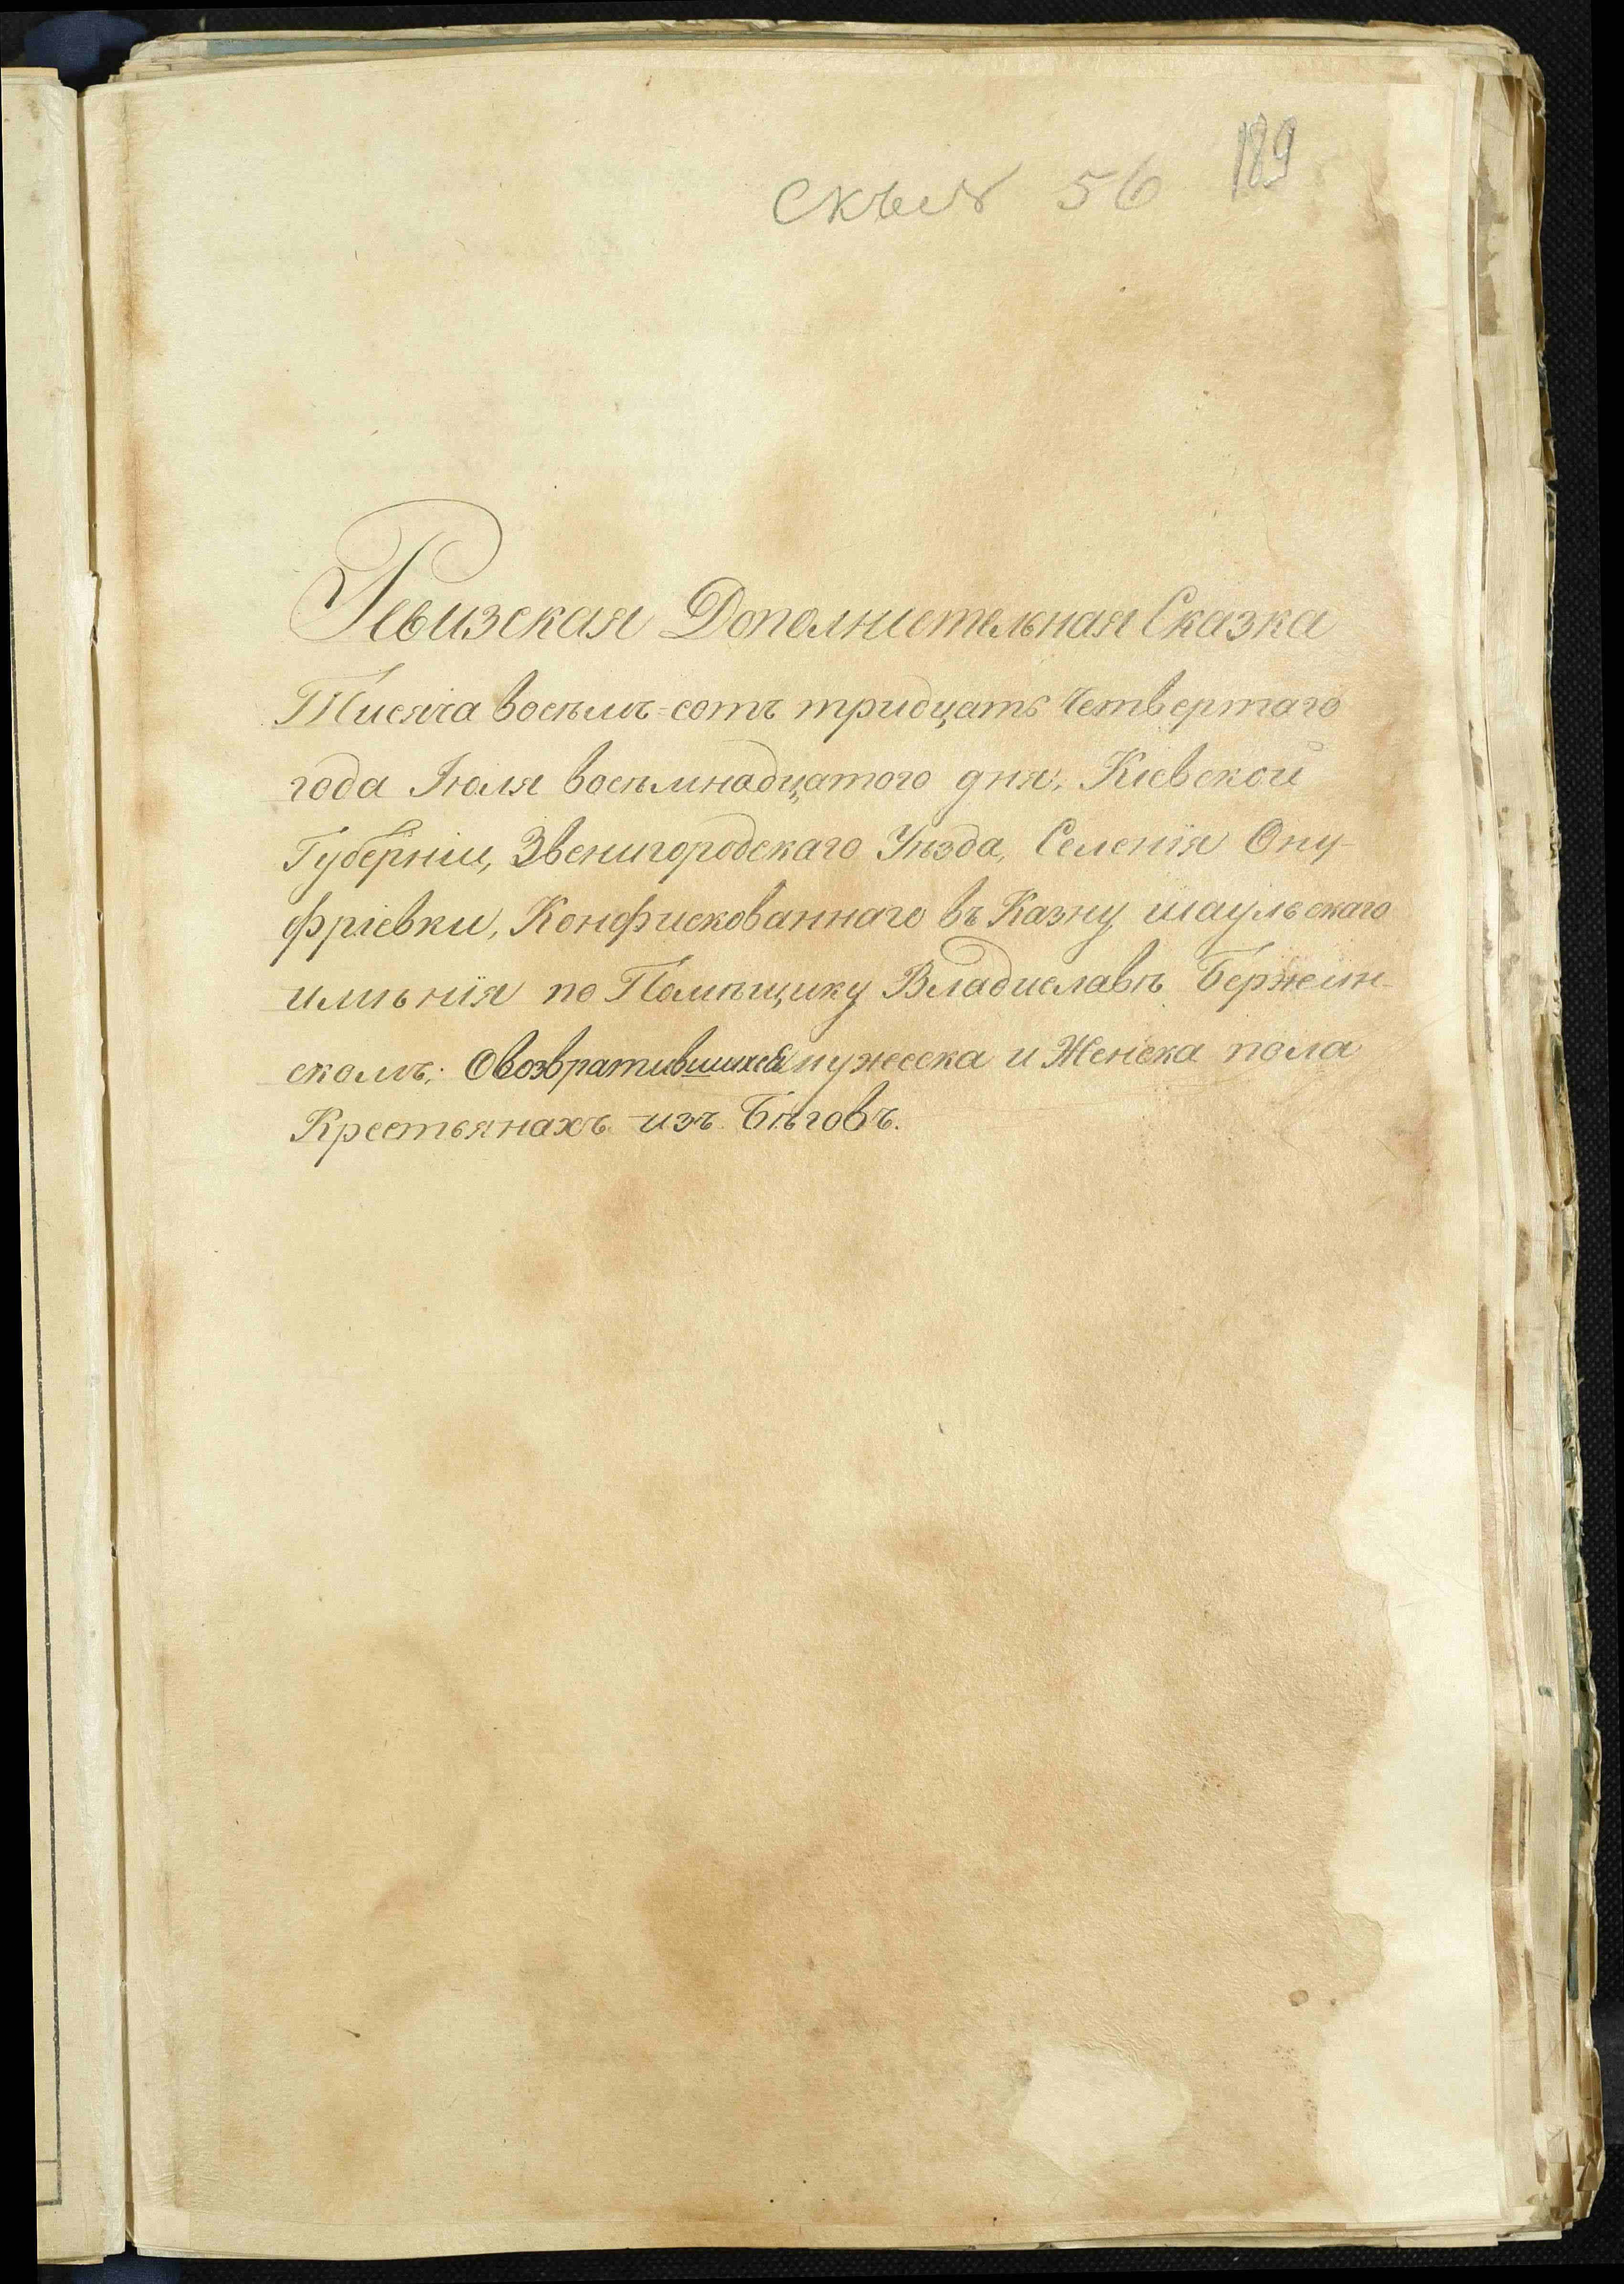 189
56
Ревизская Дополнительная Сказка
Тисяча восѣмъ=сотъ тридцать Четвертаго
года Іюля восѣмнадцатого дня, Кіевской
Губерніи, Звенигородскаго Уѣзда, Селенія Ону-
фріевки, Конфискованнаго въ Казну шаульскаго
имѣнія по Помѣщику Владиславѣ Бержин-
скомъ; Овозвратившихся мужеска и Женска пола
Крестьянахъ изъ Бѣговъ.